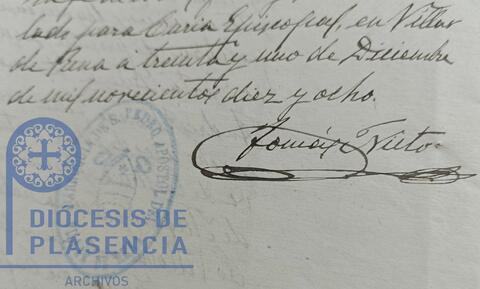 lado para Curia Episcopal, en Villar
de Rena a treinta y uno de Diciembre
de mil novecientos diez y ocho.
Tomás Nieto
S. PEDRO APOSTOL
DIÓCESIS DE
PLASENCIA
ARCHIVOS